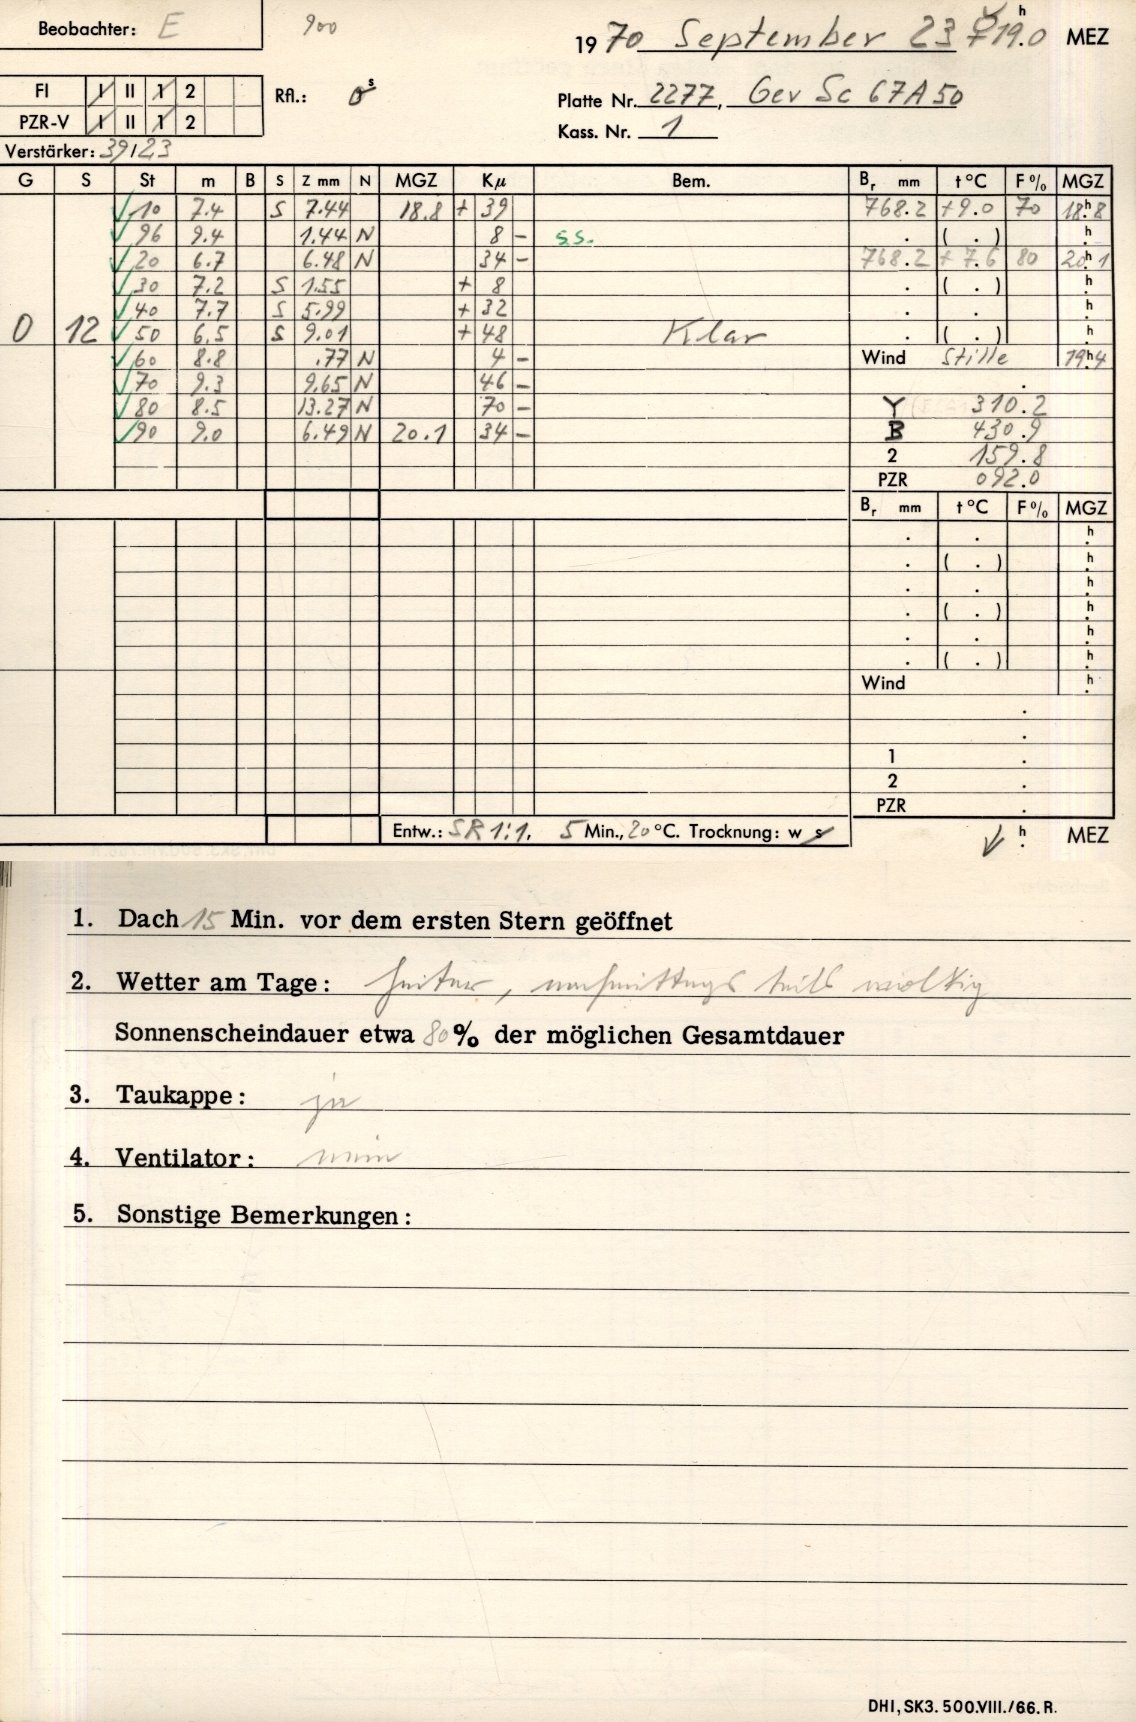 Beobachter: E 900
1970 September 23 ☿ 19.0 h MEZ
FI I II 1 2
Rfl.: 0s
Platte Nr. 2277, Gev Sc 67A50
PZR-V I II 1 2
Kass. Nr. 1
Verstärker: 39/23
G S St m B S Z mm N MGZ Kμ Bem. Br mm t°C F% MGZ
✓10 7.4 S 7.44 18.8 + 39 768.2 +9.0 70 18h.8
✓96 9.4 1.44 N 8 – s.s. . ( . ) h.
✓20 6.7 6.48 N 34 – 768.2 +7.6 80 20h.1
✓30 7.2 S 1.55 + 8 . ( . ) h.
✓40 7.7 S 5.99 + 32 . . h.
0 12 ✓50 6.5 S 9.01 + 48 Klar . ( . ) h.
✓60 8.8 .77 N 4 – Wind Stille 19h.4
✓70 9.3 9.65 N 46 – .
✓80 8.5 13.27 N 70 – Y 310.2
✓90 9.0 6.49 N 20.1 34 – B 430.9
2 159.8
PZR 092.0
Br mm t°C F% MGZ
. . h.
. ( . ) h.
. . h.
. ( . ) h.
. . h.
. ( . ) h.
Wind h.
.
.
1 .
2 .
PZR .
Entw.: SR 1:1, 5 Min., 20 °C. Trocknung: w s h. MEZ
1. Dach 15 Min. vor dem ersten Stern geöffnet
2. Wetter am Tage: heiter, nachmittags teils wolkig
Sonnenscheindauer etwa 80% der möglichen Gesamtdauer
3. Taukappe: ja
4. Ventilator: nein
5. Sonstige Bemerkungen:
DHI, SK3. 500.VIII./66. R.